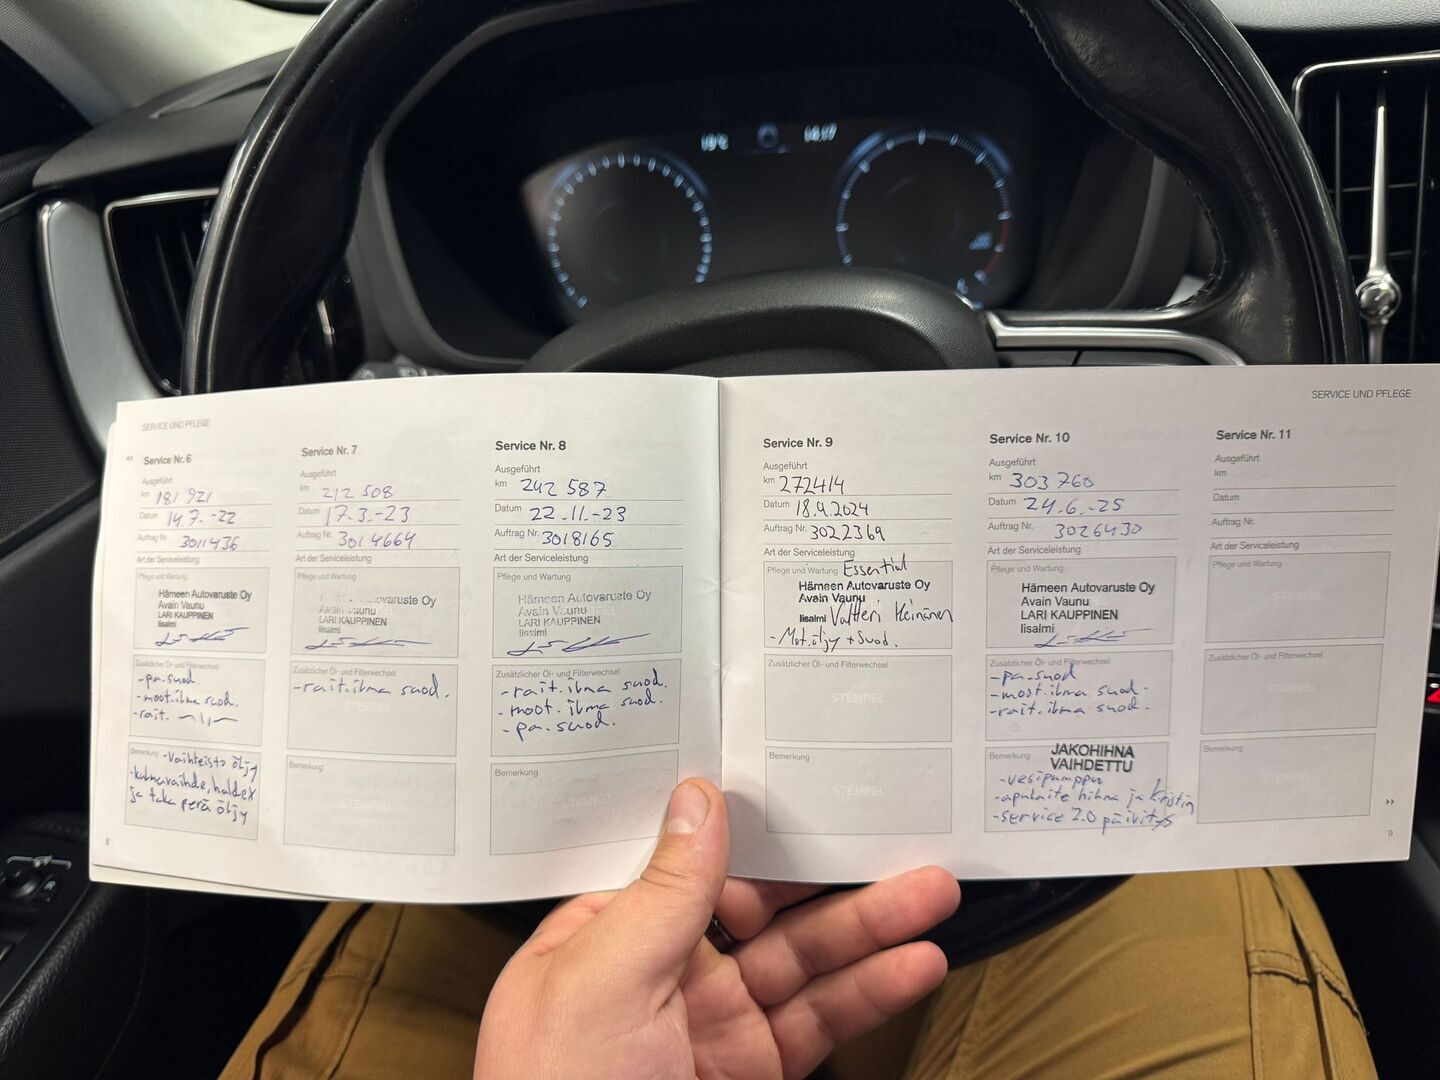 19°C
14:17
SERVICE UND PFLEGE
Service Nr. 6
Ausgeführt
km 181 921
Datum 14.7.-22
Auftrag Nr. 3011436
Art der Serviceleistung
Pflege und Wartung
Hämeen Autovaruste Oy
Avain Vaunu
LARI KAUPPINEN
Iisalmi
Zusätzlicher Öl- und Filterwechsel
-pa.suod.
-moot.ilma suod.
-rait.
Bemerkung -Vaihteisto öljy
-kulmavaihde, haldex
ja taka perä öljy
8
Service Nr. 7
Ausgeführt
km 212 508
Datum 17-3.-23
Auftrag Nr. 3014664
Art der Serviceleistung
Pflege und Wartung
Autovaruste Oy
Avain Vaunu
LARI KAUPPINEN
Iisalmi
Zusätzlicher Öl- und Filterwechsel
-rait.ilma suod.
STEMPEL
Bemerkung
STEMPEL
Service Nr. 8
Ausgeführt
km 242 587
Datum 22.11.-23
Auftrag Nr. 3018165
Art der Serviceleistung
Pflege und Wartung
Hämeen Autovaruste Oy
Avain Vaunu
LARI KAUPPINEN
Iisalmi
Zusätzlicher Öl- und Filterwechsel
-rait.ilma suod.
-moot.ilma suod.
-pa.suod.
Bemerkung
STEMPEL
SERVICE UND PFLEGE
Service Nr. 9
Ausgeführt
km 272414
Datum 18.9.2024
Auftrag Nr. 3022369
Art der Serviceleistung
Pflege und Wartung Essential
Hämeen Autovaruste Oy
Avain Vaunu
Iisalmi Valtteri Keinänen
- Mot.öljy + Suod.
Zusätzlicher Öl- und Filterwechsel
STEMPEL
Bemerkung
STEMPEL
Service Nr. 10
Ausgeführt
km 303 760
Datum 24.6.-25
Auftrag Nr. 3026430
Art der Serviceleistung
Pflege und Wartung
Hämeen Autovaruste Oy
Avain Vaunu
LARI KAUPPINEN
Iisalmi
Zusätzlicher Öl- und Filterwechsel
-pa.suod
-moot.ilma suod.
-rait.ilma suod.
Bemerkung JAKOHIHNA
VAIHDETTU
-vesipumppu
-apulaite hihna ja kiristin
-service 2.0 päivitys
Service Nr. 11
Ausgeführt
km
Datum
Auftrag Nr.
Art der Serviceleistung
Pflege und Wartung
STEMPEL
Zusätzlicher Öl- und Filterwechsel
STEMPEL
Bemerkung
STEMPEL
9